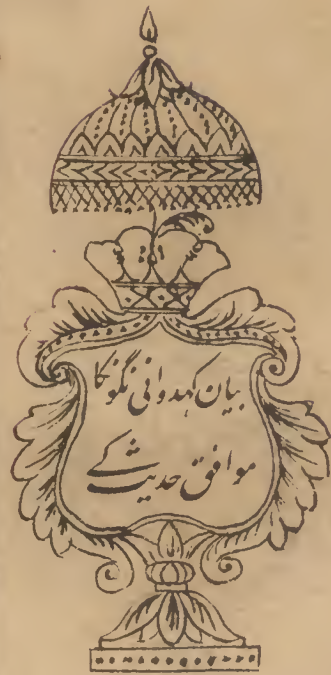 بیان کہدوانی نگونکا
موافق حدیث کے